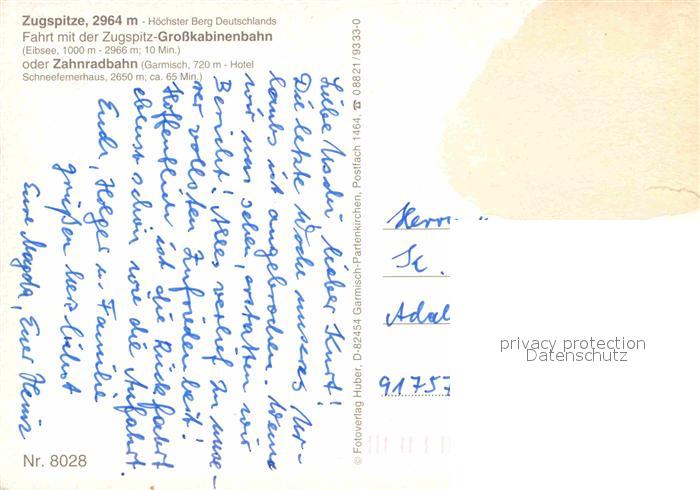 Zugspitze, 2964 m - Höchster Berg Deutschlands
Fahrt mit der Zugspitz-Großkabinenbahn
(Eibsee, 1000 m - 2966 m; 10 Min.)
oder Zahnradbahn (Garmisch, 720 m - Hotel
Schneefernerhaus, 2650 m; ca. 65 Min.)
Liebe lieber Kurt!
Die letzte Woche unseres Ur-
laubs ist angebrochen. Wenn
wir uns sehen, erstatten wir
Bericht! Alles verlief zu unse-
rer vollsten Zufriedenheit!
Hoffentlich ist die Rückfahrt
ebenso schön wie die Anfahrt.
Euch, Holger u. Familie
grüßen herzlichst
Eure Magda, Euer Heinz
Nr. 8028
© Fotoverlag Huber, D-82454 Garmisch-Partenkirchen, Postfach 1464, ☎ 08821/9333-0
Herrn
K.
Adal
91757
privacy protection
Datenschutz